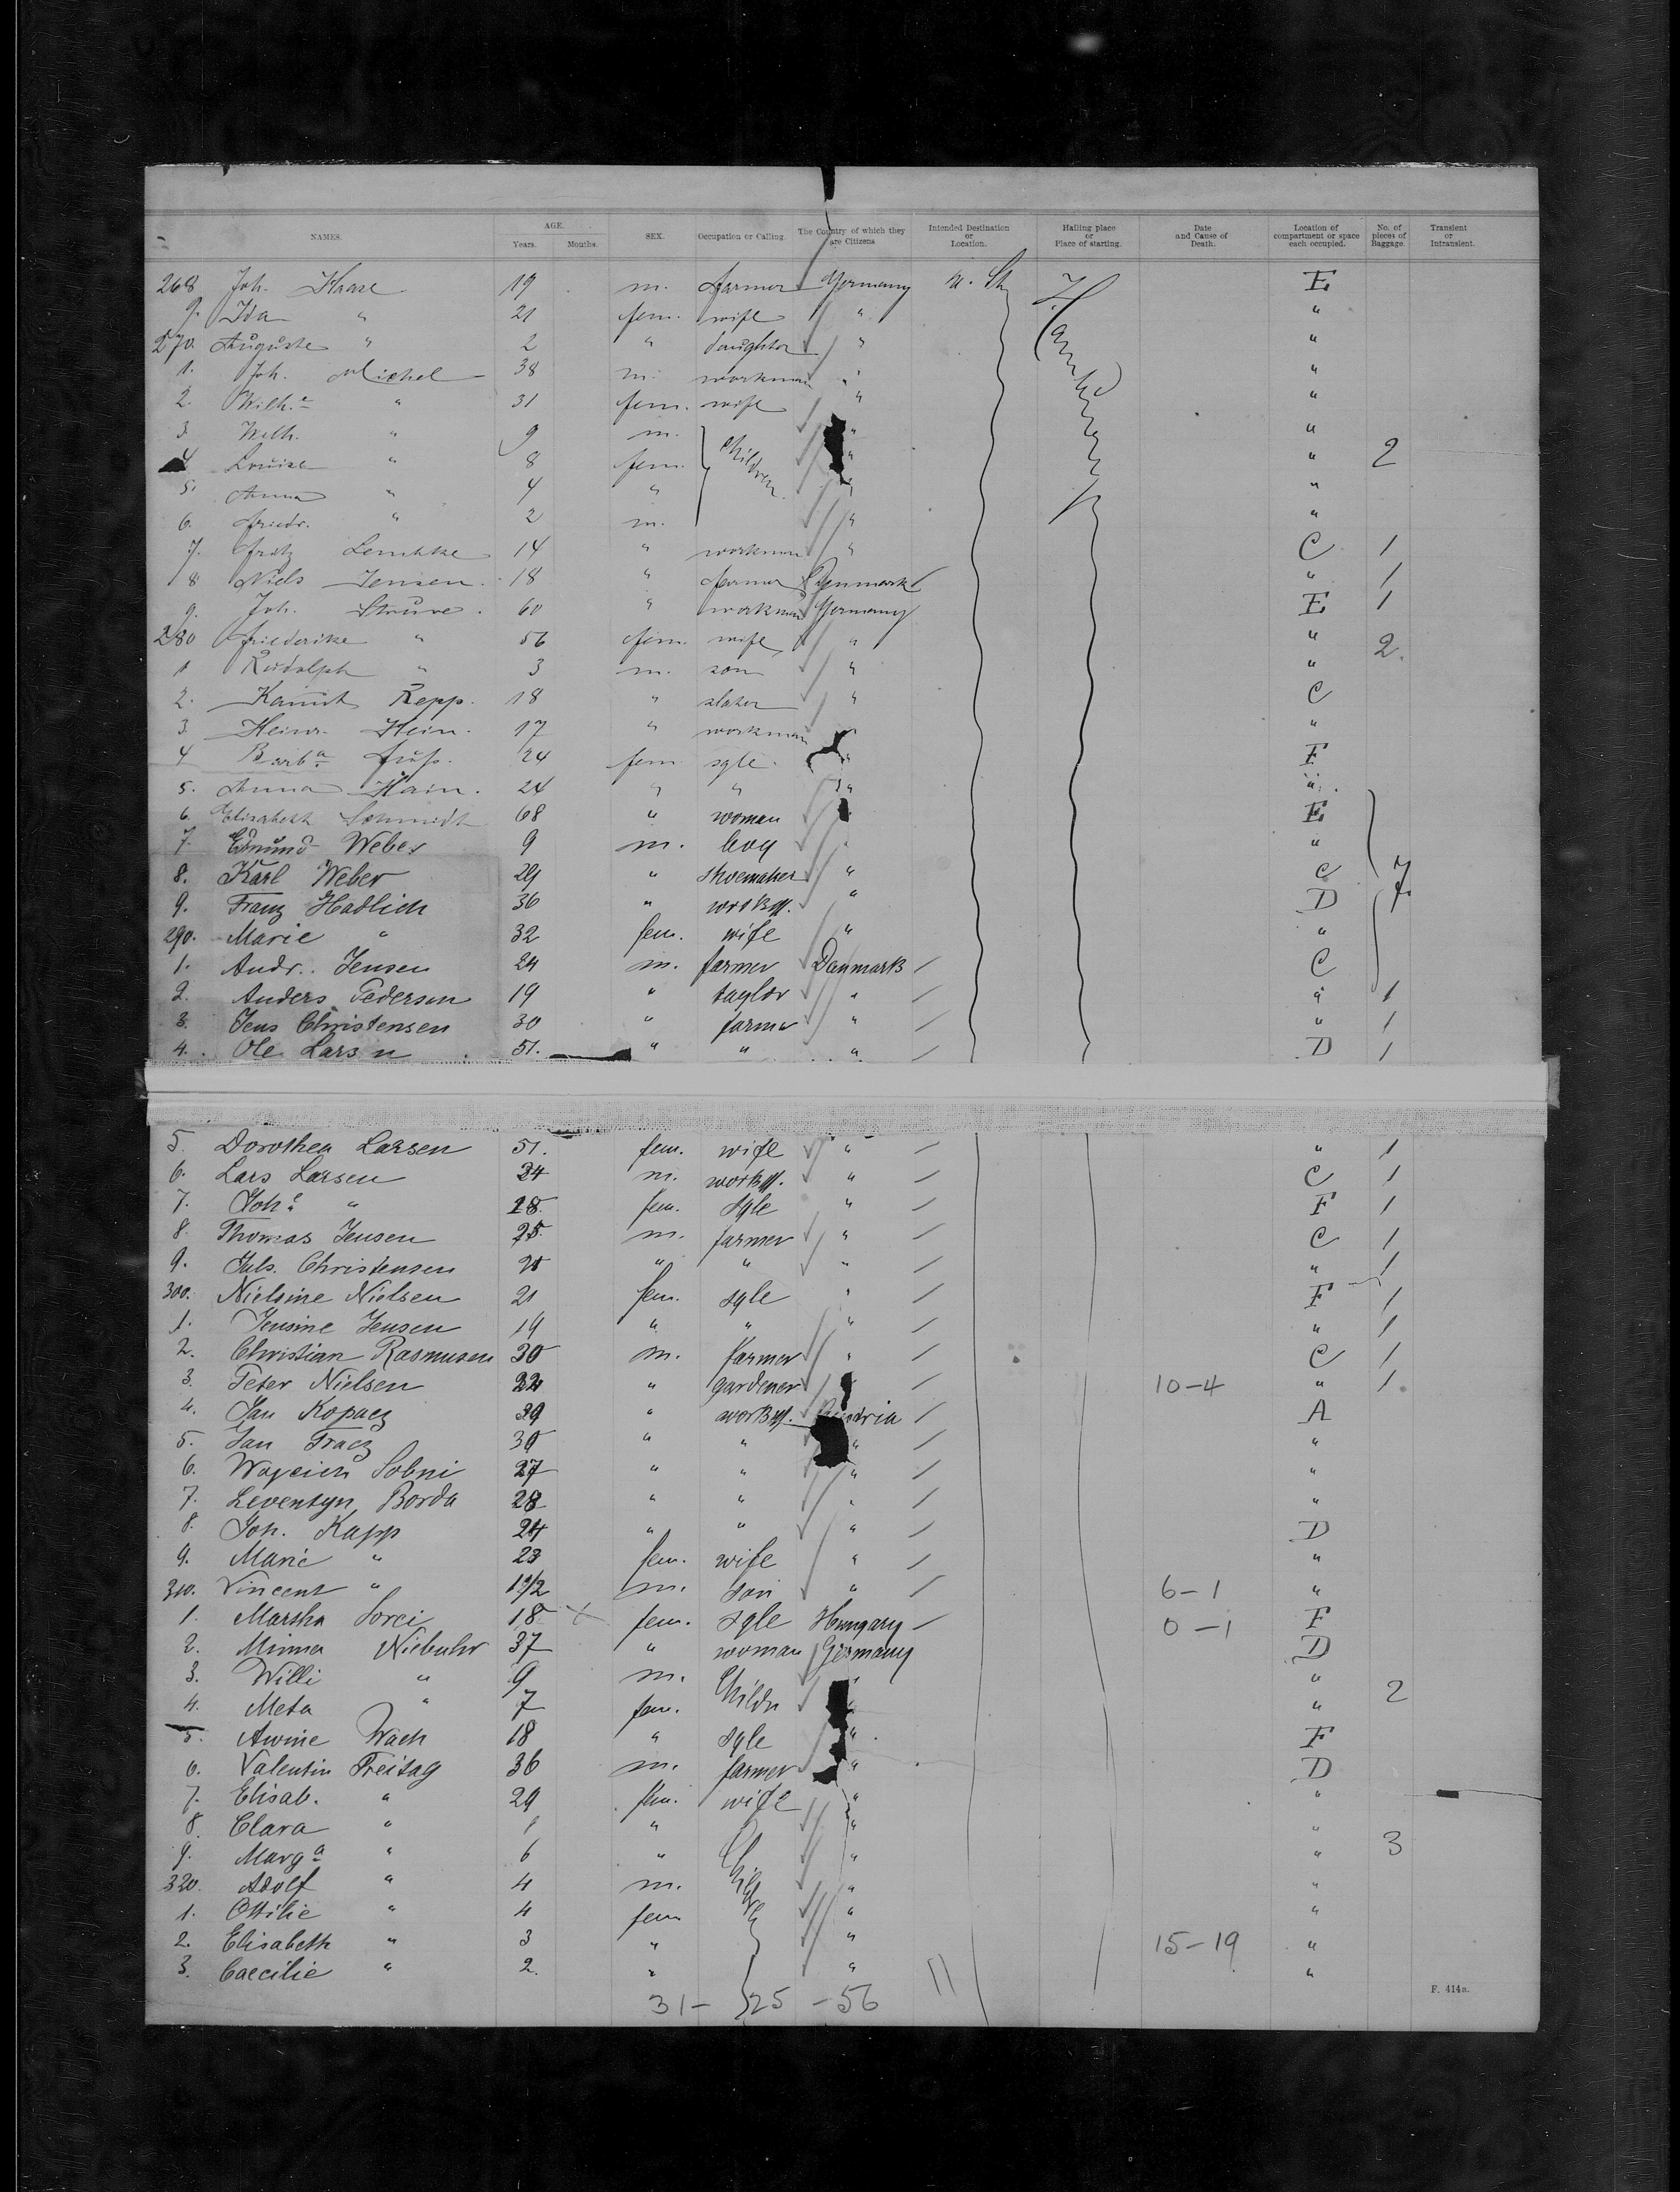 NAMES. AGE. Years. Months. SEX. Occupation or Calling. The Country of which they are Citizens Intended Destination or Location. Hailing place or Place of starting. Date and Cause of Death. Location of compartment or space each occupied. No. of pieces of Baggage. Transient or Intransient.
268 Joh. Haase 19 m. farmer Germany U. St. Hamburg E
9. Ida " 21 fem. wife " "
270. Auguste " 2 " daughter " "
1. Joh. Michel 38 m. workman " "
2. Wilh.e " 31 fem. wife " "
3. Wilh. " 9 m. Children " "
4 Louise " 8 fem. " " 2
5. Anna " 4 " " "
6. Friedr. " 2 m. " "
7. Fritz Lembke 14 " workman " C 1
8 Niels Jensen 18 " farmer Denmark " 1
9. Joh. Strüve 60 " workman Germany E 1
280 Friederike " 56 fem. wife " " 2.
1 Rudolph " 3 m. son " "
2. Repp. 18 " slater " C
3. Heinr. Hein. 17 " workman "
4 Barb.a Fuß. 24 fem sgle. " F
5. Anna Hain. 24 " " " "
6. Elisabeth Schmidt 68 " woman E
7. Edmund Weber 9 m. boy " "
8. Karl Weber 29 " shoemaker " C 7
9. Franz Hadlich 36 " workm. " D
290. Marie " 32 fem. wife " "
1. Andr. Jensen 24 m. farmer Danmark C
2. Anders Pedersen 19 " taylor " " 1
3. Jens Christensen 30 " farmer " " 1
4. Ole Larsen 51. " " " D 1
5. Dorothea Larsen 51. fem. wife " " 1
6. Lars Larsen 24 m. workm. " C 1
7. Joh.e " 18. fem. sgle " F 1
8. Thomas Jensen 25. m. farmer " C 1
9. Juls. Christensen 20 " " " " 1
300. Nielsine Nielsen 21 fem. sgle " F 1
1. Jensine Jensen 19 " " " " 1
2. Christian Rasmusen 30 m. farmer " C 1
3. Peter Nielsen 22 " gardener 10-4 " 1.
4. Jan Kopacz 39 " workm. Austria A
5. Jan Tracz 30 " " " "
6. Wojciech Sobni 27 " " " "
7. Leventyn Borda 28 " " " "
8. Joh. Kapp 24 " " " D
9. Marie " 23 fem. wife " "
310. Vincent " 1 1/2 m. son " 6-1 "
1. Martha Sorei 18 fem. sgle Hungary 0-1 F
2. Minna Niebuhr 37 " woman Germany D
3. Willi " 9 m. Childn " "
4. Meta " 7 fem. " 2
5. Awine Wach 18 " sgle " F
6. Valentin Freitag 36 m. farmer " D
7. Elisab. " 29 fem. wife " "
8. Clara " " Children " "
9. Marg.a " 6 " " " 3
320. Adolf " 4 m. " "
1. Ottilie " 4 fem " "
2. Elisabeth " 3 " " 15-19 "
3. Caecilie " 2. " " "
31- 25 -56 11
F. 414a.